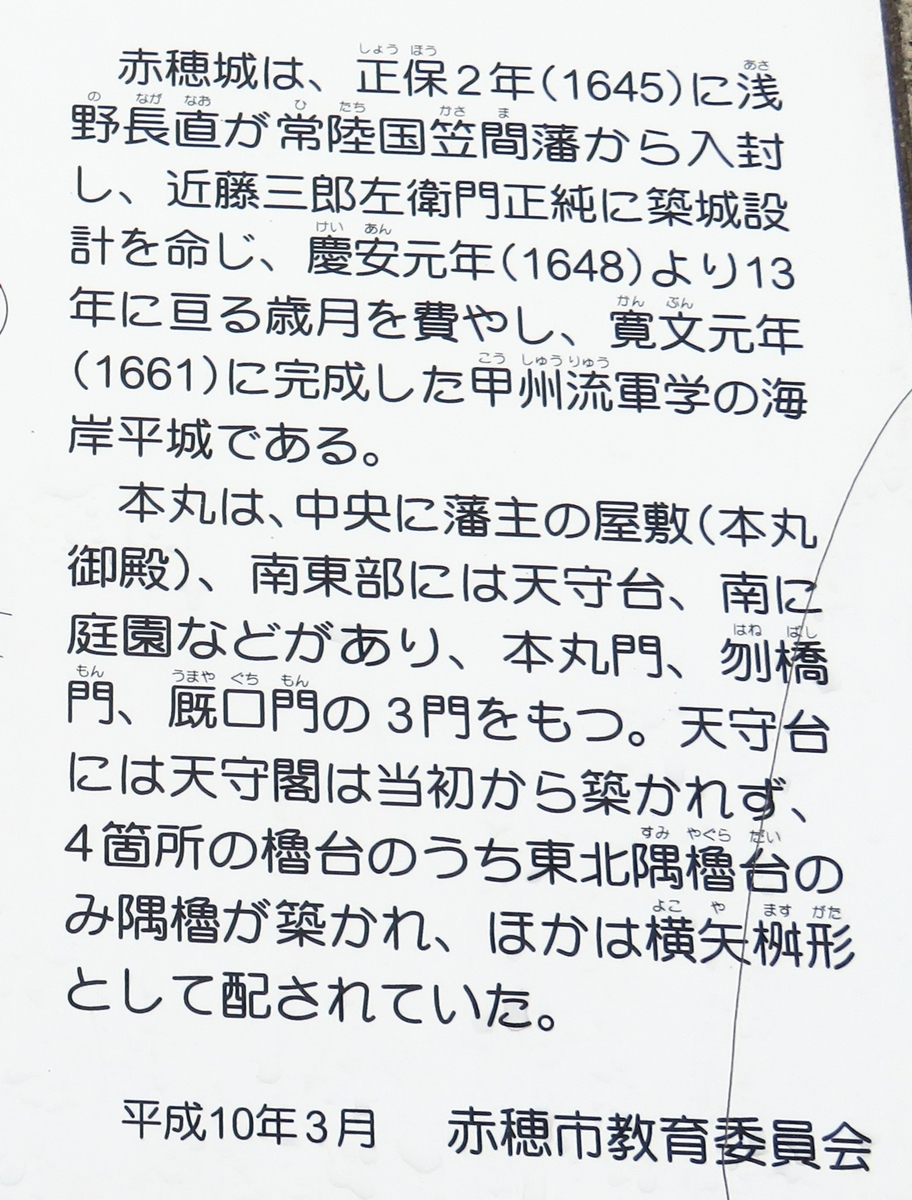 赤穂城は、正保2年(1645)に浅
野長直が常陸国笠間藩から入封
し、近藤三郎左衛門正純に築城設
計を命じ、慶安元年(1648)より13
年に亘る歳月を費やし、寛文元年
(1661)に完成した甲州流軍学の海
岸平城である。
本丸は、中央に藩主の屋敷(本丸
御殿)、南東部には天守台、南に
庭園などがあり、本丸門、刎橋
門、厩口門の3門をもつ。天守台
には天守閣は当初から築かれず、
4箇所の櫓台のうち東北隅櫓台の
み隅櫓が築かれ、ほかは横矢桝形
として配されていた。
平成10年3月 赤穂市教育委員会